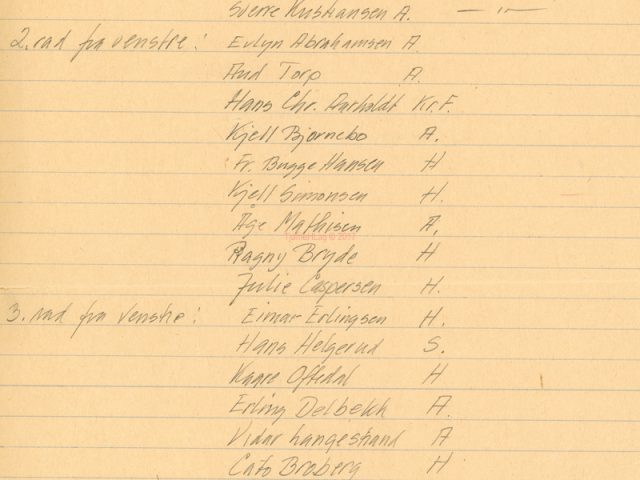 Sverre Kristiansen A. — " —
2. rad fra venstre: Evlyn Abrahamsen A.
Aud Torp A.
Hans Chr. Aarholdt Kr.F.
Kjell Bjørnebo A.
Fr. Bugge Hansen H
Kjell Simonsen H.
Åge Mathisen A.
Ragny Bryde H
Julie Caspersen H.
3. rad fra venstre: Einar Erlingsen H.
Hans Helgerud S.
Kaare Oftedal H
Erling Delbekk A.
Vidar Langestrand A
Cato Broberg H